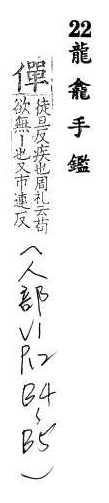 22龍龕手鑑
僤
徒旦反疾也周礼云苟
欲無丨也又市連反
(人部V1
P12
B4~
B5)